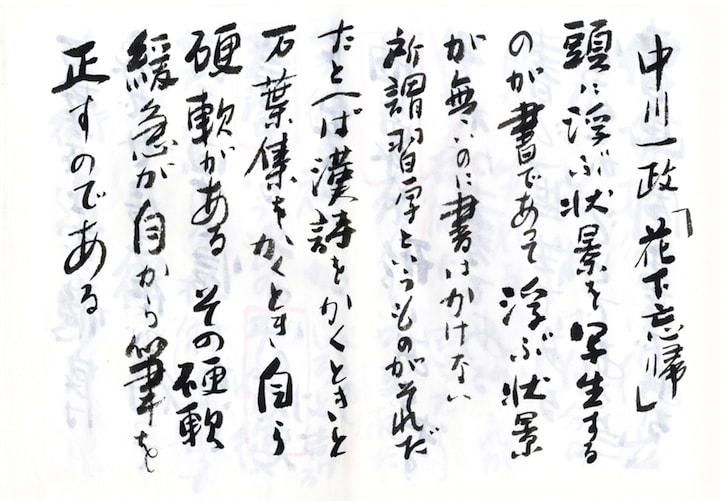 中川一政「花下忘帰」
頭に浮ぶ状景を写生する
のが書であって 浮ぶ状景
が無いのに書はかけない
所謂習字といふものがそれだ
たとへば漢詩をかくときと
万葉集をかくとき 自ら
硬軟がある その硬軟
緩急が自から筆を
正すのである